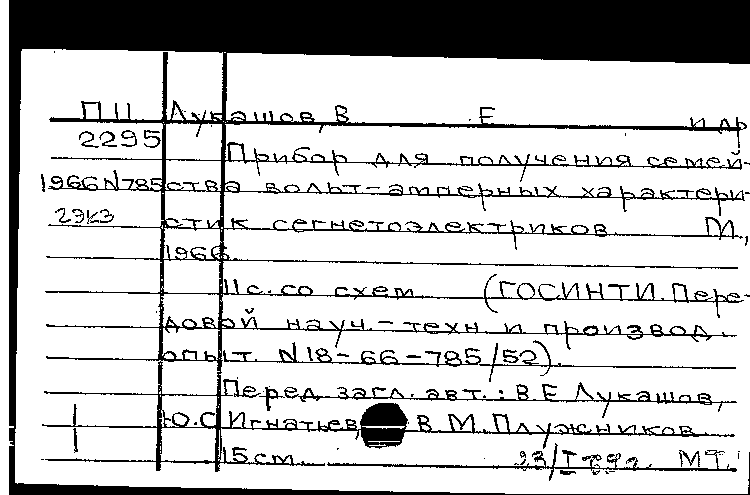 П11 Лукашов, В. Е. и др
2295 Прибор для получения семей-
1966 N785 ства вольт-амперных характери-
29к3 стик сегнетоэлектриков. М.,
1966.
11с. со схем. (ГОСИНТИ. Пере-
довой науч.-техн. и производ.
опыт. N18-66-785/52).
Перед загл. авт.: В.Е Лукашов,
Ю.С Игнатьев, В.М.Плужников.
15см. МТ.